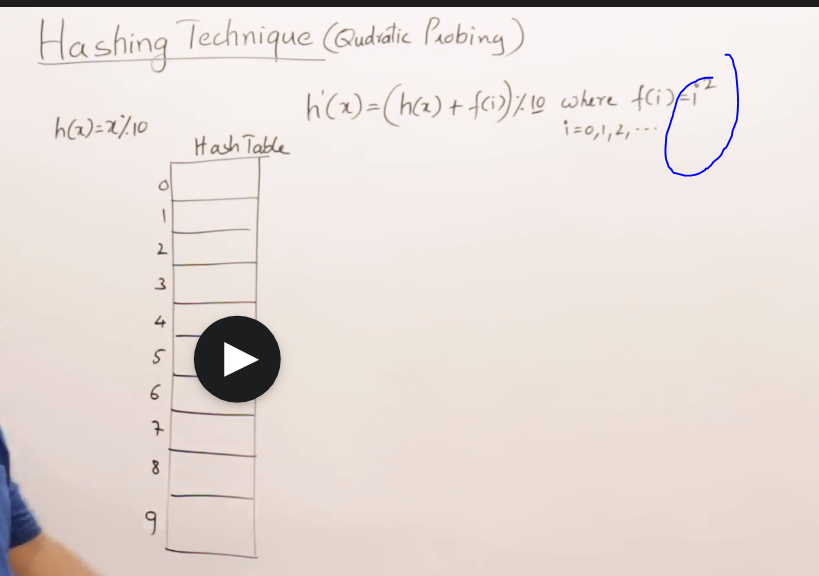 Hashing Technique (Qudratic Probing)
h'(x)=(h(x)+f(i))%10 where f(i)=i²
i=0,1,2,...
h(x)=x%10
Hash Table
0
1
2
3
4
5
6
7
8
9